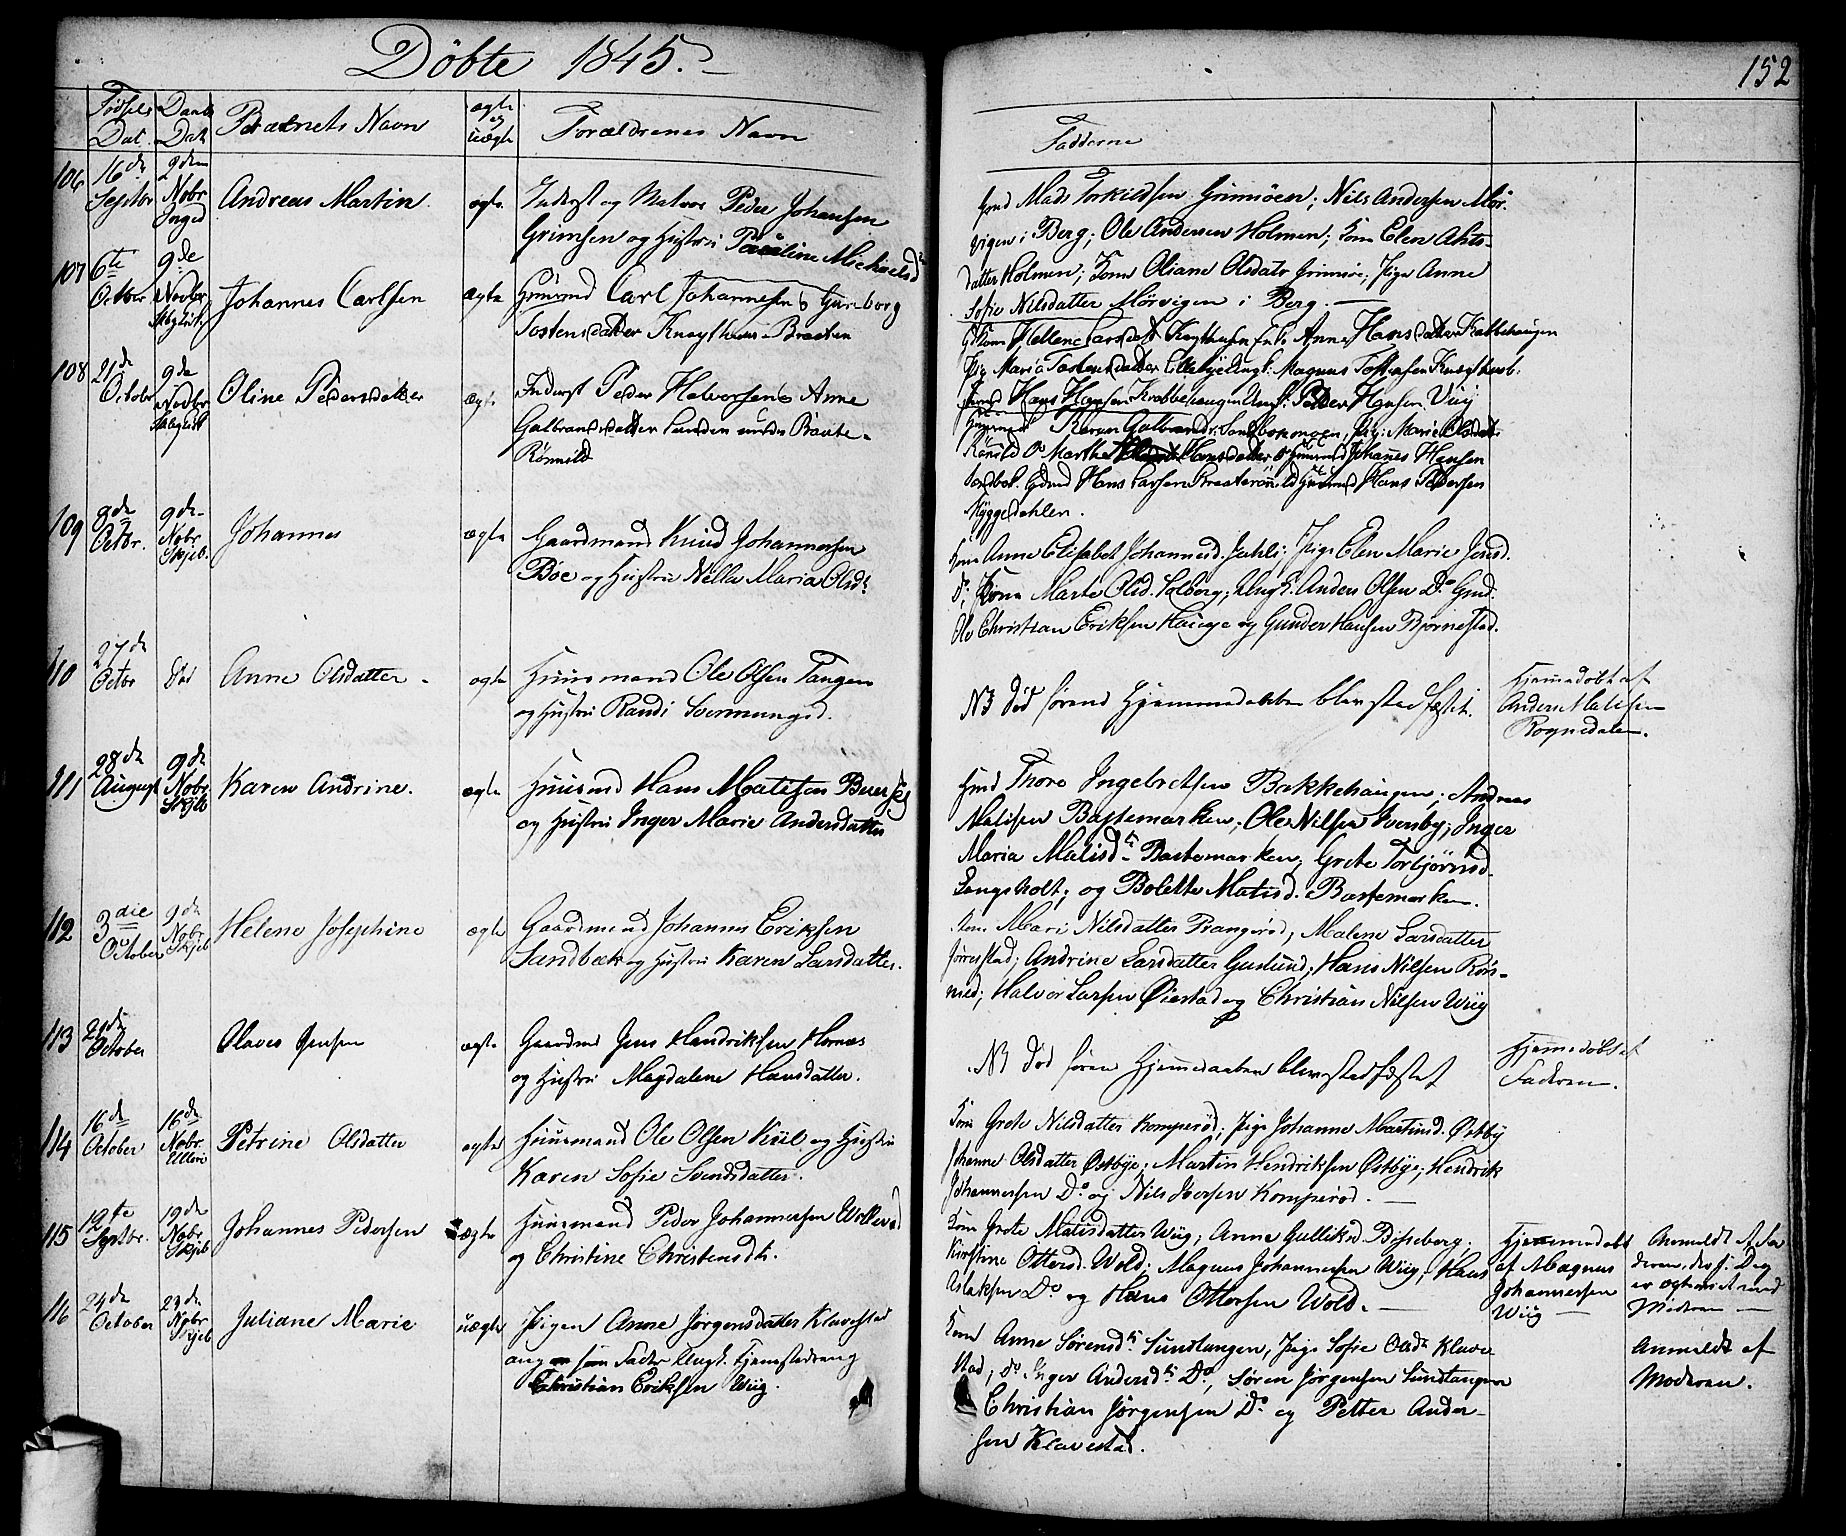 Döbte 1845.
152
Fødsels Dat. Daabs Dat. Barnets Navn ægte og uægte Forældrenes Navn Fadderne
106 16de Septbr 9den Nobr Andreas Martin ægte Inderst og Matros Peder Johansen
Grimsøen og Hustru Pauline Michaelsd
Gmd Mads Torkildsen Grimsöen; Nils Andersen Mör-
vigen i Berg; Ole Andersen Holmen; Kone Elen
datter Holmen; Kone Oliane Olsdatr Grimsöe; Pige Anne
Sofie Nilsdatter Mörvigen i Berg.
107 6te Octbr 9de Novbr Johannes Carlsen ægte Huusmd Carl Johannesen & Gunborg
Tostensdatter
Anne Hansdatter Krabbehaugen
Pig Maria Tostensdatter
Hans Hansen Krabbehaugen Peder Hansen Viig
108 21de Octobr 9de Novbr Oline Pedersdatter ægte Inderst Peder Halvorsen & Anne
Gulbrandsdatter Lunden under Braate-
Rönnild
Marie Olsdatr
Rönild Marthe Hansdatter & Huusmd Johannes Hansen
Sandbek Gdmd Hans Larsen Braaterönild Huusmd Hans Pedersen
Hyggedahlen.
109 8de Octbr. 9de Nobr. Skjeb. Johannes ægte Gaardmand Knud Johannesen
Böe og Hustru Nella Maria Olsdr
Kone Anne Elisabet Johannesd. Pige Elen Marie Jensd.
Do; Kone Marte Olsd. Solberg; Ungk. Anders Olsen Do Gmd.
Ole Christian Eriksen Hauge og Gunder Hansen Bjørnestad.
110 27de Octbr Anne Olsdatter - ægte Huusmand Ole Olsen Tangen
og Hustru Randi Svermungsd.
NB Död förend Hjemmedaaben blev stadfæstet.
Hjemmedobt af
Anders Matisen
Rognedalen.
111 28de August 9de Nobr. Skjeb Karen Andrine. ægte Huusmd Hans Matisen
og Hustru Inger Marie Andersdatter
Hmd Thore Ingebretsen Bakkehaugen; Andreas
Matisen Bastemarken; Ole Nilsen Iversby; Inger
Maria Matisdtr Bastemarken; Grete Torbjörnsd.
Langsholt; og Bolette Matisd. Bastemarken.
112 3die October 9de Nobr. Skjeb Helene Josephine ægte Gaardmand Johannes Eriksen
Sandbæk og Hustru Karen Larsdatter.
Kone Mari Nilsdatter Frangerød, Malene Larsdatter
Jörrestad; Andrine Larsdatter Guslund; Hans Nilsen Rös-
med; Halvor Larsen Øiestad og Christian Nilsen Wiig
113 21de October Olaves Jensen ægte Gaardmd Jens Hendriksen Hornæs
og Hustru Magdalene Hansdatter.
NB Död förend Hjemmedaaben blev stadfæstet
Hjemmedobt af
Faderen.
114 16de October 16de Nobr. Ulleri Petrine Olsdatter ægte Huusmand Ole Olsen Kiil og Hustru
Karen Sofie Svendsdatter.
Kone Grete Nilsdatter Komperöd; Pige Johanne Martinsd. Østby
Johanne Olsdatter Østbye; Martin Hendriksen Østbye; Hendrik
Johannesen Do og Nils Iversen Komperöd.
115 12te Septbr. 19de Nobr. Skjeb Johannes Pedersen uægte Huusmand Peder Johannesen
og Christine Christensdtr.
Kone Grete Matisdatter Wiig; Anne Gulliksd. Bisseberg;
Kirstine Ottersd. Wold; Magnus Johannesen Wiig; Hans
Islaksen Do og Hans Ottersen Wold.
Hjemmedobt
af Magnus
Johannesen
Wiig
Anmeldt af Fa
deren, des f: Dag
er ægteviet med
Moderen
116 24de October 23de Nobr Skjeb Juliane Marie uægte Pigen Anne Jörgensdatter Klavestad
ang som Fader Ungk.
Christian Eriksen Wiig.
Kone Anne Sörensdtr Sundtangen, Pige Sofie Olsdr Klave
stad, Do Inger Andersdtr Do, Sören Jörgensen Sundtangen
Christian Jörgensen Do og Petter Ander-
sen Klavestad.
Anmeldt af
Moderen.